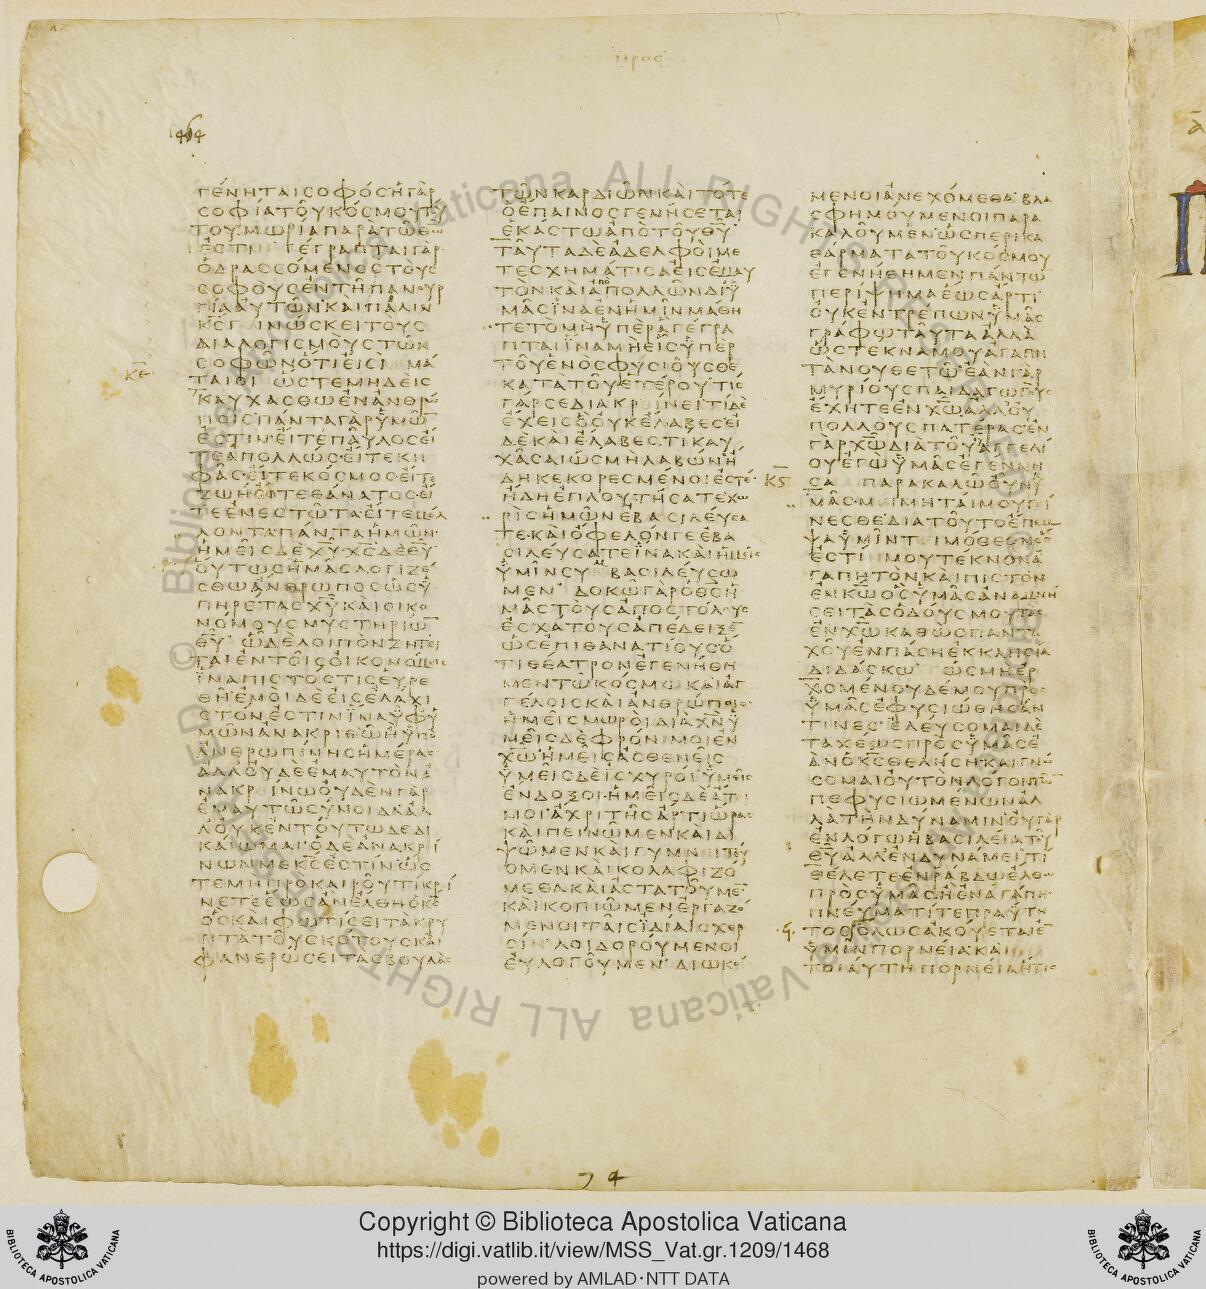 1464
ΓΕΝΗΤΑΙΣΟΦΟΣΗΓΑΡ
ΣΟΦΙΑΤΟΥΚΟΣΜΟΥΤΟΥ
ΤΟΥΜΩΡΙΑΠΑΡΑΤΩΘΕΩ
ΕΣΤΙΝΓΕΓΡΑΠΤΑΙΓΑΡ
ΟΔΡΑΣΣΟΜΕΝΟΣΤΟΥΣ
ΣΟΦΟΥΣΕΝΤΗΠΑΝΟΥΡ
ΓΙΑΑΥΤΩΝΚΑΙΠΑΛΙΝ
ΚΣΓΕΙΝΩΣΚΕΙΤΟΥΣ
ΔΙΑΛΟΓΙΣΜΟΥΣΤΩΝ
ΣΟΦΩΝΟΤΙΕΙΣΙΜΑ
ΤΑΙΟΙΩΣΤΕΜΗΔΕΙΣ
ΚΑΥΧΑΣΘΩΕΝΑΝΘΡΩ
ΠΟΙΣΠΑΝΤΑΓΑΡΥΜΩ
ΕΣΤΙΝΕΙΤΕΠΑΥΛΟΣΕΙ
ΤΕΑΠΟΛΛΩΣΕΙΤΕΚΗ
ΦΑΣΕΙΤΕΚΟΣΜΟΣΕΙΤΕ
ΖΩΗΕΙΤΕΘΑΝΑΤΟΣΕΙ
ΤΕΕΝΕΣΤΩΤΑΕΙΤΕΜΕΛ
ΛΟΝΤΑΠΑΝΤΑΗΜΩΝ
ΗΜΕΙΣΔΕΧΥΧΣΔΕΘΥ
ΟΥΤΩΣΗΜΑΣΛΟΓΙΖΕ
ΣΘΩΑΝΘΡΩΠΟΣΩΣΥ
ΠΗΡΕΤΑΣΧΥΚΑΙΟΙΚΟ
ΝΟΜΟΥΣΜΥΣΤΗΡΙΩ
ΘΥΩΔΕΛΟΙΠΟΝΖΗΤΕΙ
ΤΑΙΕΝΤΟΙΣΟΙΚΟΝΟΜΟΙΣ
ΙΝΑΠΙΣΤΟΣΤΙΣΕΥΡΕ
ΘΗΕΜΟΙΔΕΕΙΣΕΛΑΧΙ
ΣΤΟΝΕΣΤΙΝΙΝΑΥΦΥ
ΜΩΝΑΝΑΚΡΙΘΩΗΥΠΟ
ΑΝΘΡΩΠΙΝΗΣΗΜΕΡΑΣ
ΑΛΛΟΥΔΕΕΜΑΥΤΟΝΑ
ΝΑΚΡΙΝΩΟΥΔΕΝΓΑΡ
ΕΜΑΥΤΩΣΥΝΟΙΔΑΑΛ
ΛΟΥΚΕΝΤΟΥΤΩΔΕΔΙ
ΚΑΙΩΜΑΙΟΔΕΑΝΑΚΡΙ
ΝΩΝΜΕΚΣΕΣΤΙΝΩΣ
ΤΕΜΗΠΡΟΚΑΙΡΟΥΤΙΚΡΙ
ΝΕΤΕΕΩΣΑΝΕΛΘΗΟΚΣ
ΟΣΚΑΙΦΩΤΙΣΕΙΤΑΚΡΥ
ΠΤΑΤΟΥΣΚΟΤΟΥΣΚΑΙ
ΦΑΝΕΡΩΣΕΙΤΑΣΒΟΥΛΑΣ
ΤΩΝΚΑΡΔΙΩΝΚΑΙΤΟΤΕ
ΟΕΠΑΙΝΟΣΓΕΝΗΣΕΤΑΙ
ΕΚΑΣΤΩΑΠΟΤΟΥΘΥ
ΤΑΥΤΑΔΕΑΔΕΛΦΟΙΜΕ
ΤΕΣΧΗΜΑΤΙΣΑΕΙΣΕΜΑΥ
ΤΟΝΚΑΙΑΠΟΛΛΩΝΔΙΥ
ΜΑΣΙΝΑΕΝΗΜΙΝΜΑΘΗ
ΤΕΤΟΜΗΥΠΕΡΑΓΕΓΡΑ
ΠΤΑΙΙΝΑΜΗΕΙΣΥΠΕΡ
ΤΟΥΕΝΟΣΦΥΣΙΟΥΣΘΕ
ΚΑΤΑΤΟΥΕΤΕΡΟΥΤΙΣ
ΓΑΡΣΕΔΙΑΚΡΙΝΕΙΤΙΔΕ
ΕΧΕΙΣΟΟΥΚΕΛΑΒΕΣΕΙ
ΔΕΚΑΙΕΛΑΒΕΣΤΙΚΑΥ
ΧΑΣΑΙΩΣΜΗΛΑΒΩΝΗ
ΔΗΚΕΚΟΡΕΣΜΕΝΟΙΕΣΤΕ
ΗΔΗΕΠΛΟΥΤΗΣΑΤΕΧΩ
ΡΙΣΗΜΩΝΕΒΑΣΙΛΕΥΣΑ
ΤΕΚΑΙΟΦΕΛΟΝΓΕΕΒΑ
ΣΙΛΕΥΣΑΤΕΙΝΑΚΑΙΗΜΕΙΣ
ΥΜΙΝΣΥΜΒΑΣΙΛΕΥΣΩ
ΜΕΝΔΟΚΩΓΑΡΟΘΣΗ
ΜΑΣΤΟΥΣΑΠΟΣΤΟΛΟΥΣ
ΕΣΧΑΤΟΥΣΑΠΕΔΕΙΞΕ
ΩΣΕΠΙΘΑΝΑΤΙΟΥΣΟ
ΤΙΘΕΑΤΡΟΝΕΓΕΝΗΘΗ
ΜΕΝΤΩΚΟΣΜΩΚΑΙΑΓ
ΓΕΛΟΙΣΚΑΙΑΝΘΡΩΠΟΙΣ
ΗΜΕΙΣΜΩΡΟΙΔΙΑΧΝΥ
ΜΕΙΣΔΕΦΡΟΝΙΜΟΙΕΝ
ΧΩΗΜΕΙΣΑΣΘΕΝΕΙΣ
ΥΜΕΙΣΔΕΙΣΧΥΡΟΙΥΜΕΙΣ
ΕΝΔΟΞΟΙΗΜΕΙΣΔΕΑΤΙ
ΜΟΙΑΧΡΙΤΗΣΑΡΤΙΩΡΑΣ
ΚΑΙΠΕΙΝΩΜΕΝΚΑΙΔΙ
ΨΩΜΕΝΚΑΙΓΥΜΝΙΤΕΥ
ΟΜΕΝΚΑΙΚΟΛΑΦΙΖΟ
ΜΕΘΑΚΑΙΑΣΤΑΤΟΥΜΕ
ΚΑΙΚΟΠΙΩΜΕΝΕΡΓΑΖΟ
ΜΕΝΟΙΤΑΙΣΙΔΙΑΙΣΧΕΡ
ΣΙΝΛΟΙΔΟΡΟΥΜΕΝΟΙ
ΕΥΛΟΓΟΥΜΕΝΔΙΩΚΟ
ΜΕΝΟΙΑΝΕΧΟΜΕΘΑΒΛΑ
ΣΦΗΜΟΥΜΕΝΟΙΠΑΡΑ
ΚΑΛΟΥΜΕΝΩΣΠΕΡΙΚΑ
ΘΑΡΜΑΤΑΤΟΥΚΟΣΜΟΥ
ΕΓΕΝΗΘΗΜΕΝΠΑΝΤΩ
ΠΕΡΙΨΗΜΑΕΩΣΑΡΤΙ
ΟΥΚΕΝΤΡΕΠΩΝΥΜΑΣ
ΓΡΑΦΩΤΑΥΤΑΑΛΛΑ
ΩΣΤΕΚΝΑΜΟΥΑΓΑΠΗ
ΤΑΝΟΥΘΕΤΩΕΑΝΓΑΡ
ΜΥΡΙΟΥΣΠΑΙΔΑΓΩΓΟΥΣ
ΕΧΗΤΕΕΝΧΩΑΛΛΟΥ
ΠΟΛΛΟΥΣΠΑΤΕΡΑΣΕΝ
ΓΑΡΧΩΔΙΑΤΟΥΕΥΑΓΓΕΛΙ
ΟΥΕΓΩΥΜΑΣΕΓΕΝΝΗ
ΣΑΠΑΡΑΚΑΛΩΟΥΝΥ
ΜΑΣΜΙΜΗΤΑΙΜΟΥΓΕΙ
ΝΕΣΘΕΔΙΑΤΟΥΤΟΕΠΕΜ
ΨΑΥΜΙΝΤΙΜΟΘΕΟΝΟΣ
ΕΣΤΙΜΟΥΤΕΚΝΟΝΑ
ΓΑΠΗΤΟΝΚΑΙΠΙΣΤΟΝ
ΕΝΚΩΟΣΥΜΑΣΑΝΑΜΝΗ
ΣΕΙΤΑΣΟΔΟΥΣΜΟΥΤΑΣ
ΕΝΧΩΚΑΘΩΣΠΑΝΤΑ
ΧΟΥΕΝΠΑΣΗΕΚΚΛΗΣΙΑ
ΔΙΔΑΣΚΩΩΣΜΗΕΡ
ΧΟΜΕΝΟΥΔΕΜΟΥΠΡΟΣ
ΥΜΑΣΕΦΥΣΙΩΘΗΣΑΝ
ΤΙΝΕΣΕΛΕΥΣΟΜΑΙΔΕ
ΤΑΧΕΩΣΠΡΟΣΥΜΑΣΕ
ΑΝΟΚΣΘΕΛΗΣΗΚΑΙΓΝΩ
ΣΟΜΑΙΟΥΤΟΝΛΟΓΟΝΤΩ
ΠΕΦΥΣΙΩΜΕΝΩΝΑΛ
ΛΑΤΗΝΔΥΝΑΜΙΝΟΥΓΑΡ
ΕΝΛΟΓΩΗΒΑΣΙΛΕΙΑΤΟΥ
ΘΥΑΛΛΕΝΔΥΝΑΜΕΙΤΙ
ΘΕΛΕΤΕΕΝΡΑΒΔΩΕΛΘΩ
ΠΡΟΣΥΜΑΣΗΕΝΑΓΑΠΗ
ΠΝΕΥΜΑΤΙΤΕΠΡΑΥΤΗ
ΤΟΣΟΛΩΣΑΚΟΥΕΤΑΙΕ
ΥΜΙΝΠΟΡΝΕΙΑΚΑΙ
ΤΟΙΑΥΤΗΠΟΡΝΕΙΑΗΤΙΣ
ΚΕ
ΚϚ
74
Copyright © Biblioteca Apostolica Vaticana
https://digi.vatlib.it/view/MSS_Vat.gr.1209/1468
powered by AMLAD·NTT DATA
BIBLIOTECA APOSTOLICA VATICANA
BIBLIOTECA APOSTOLICA VATICANA